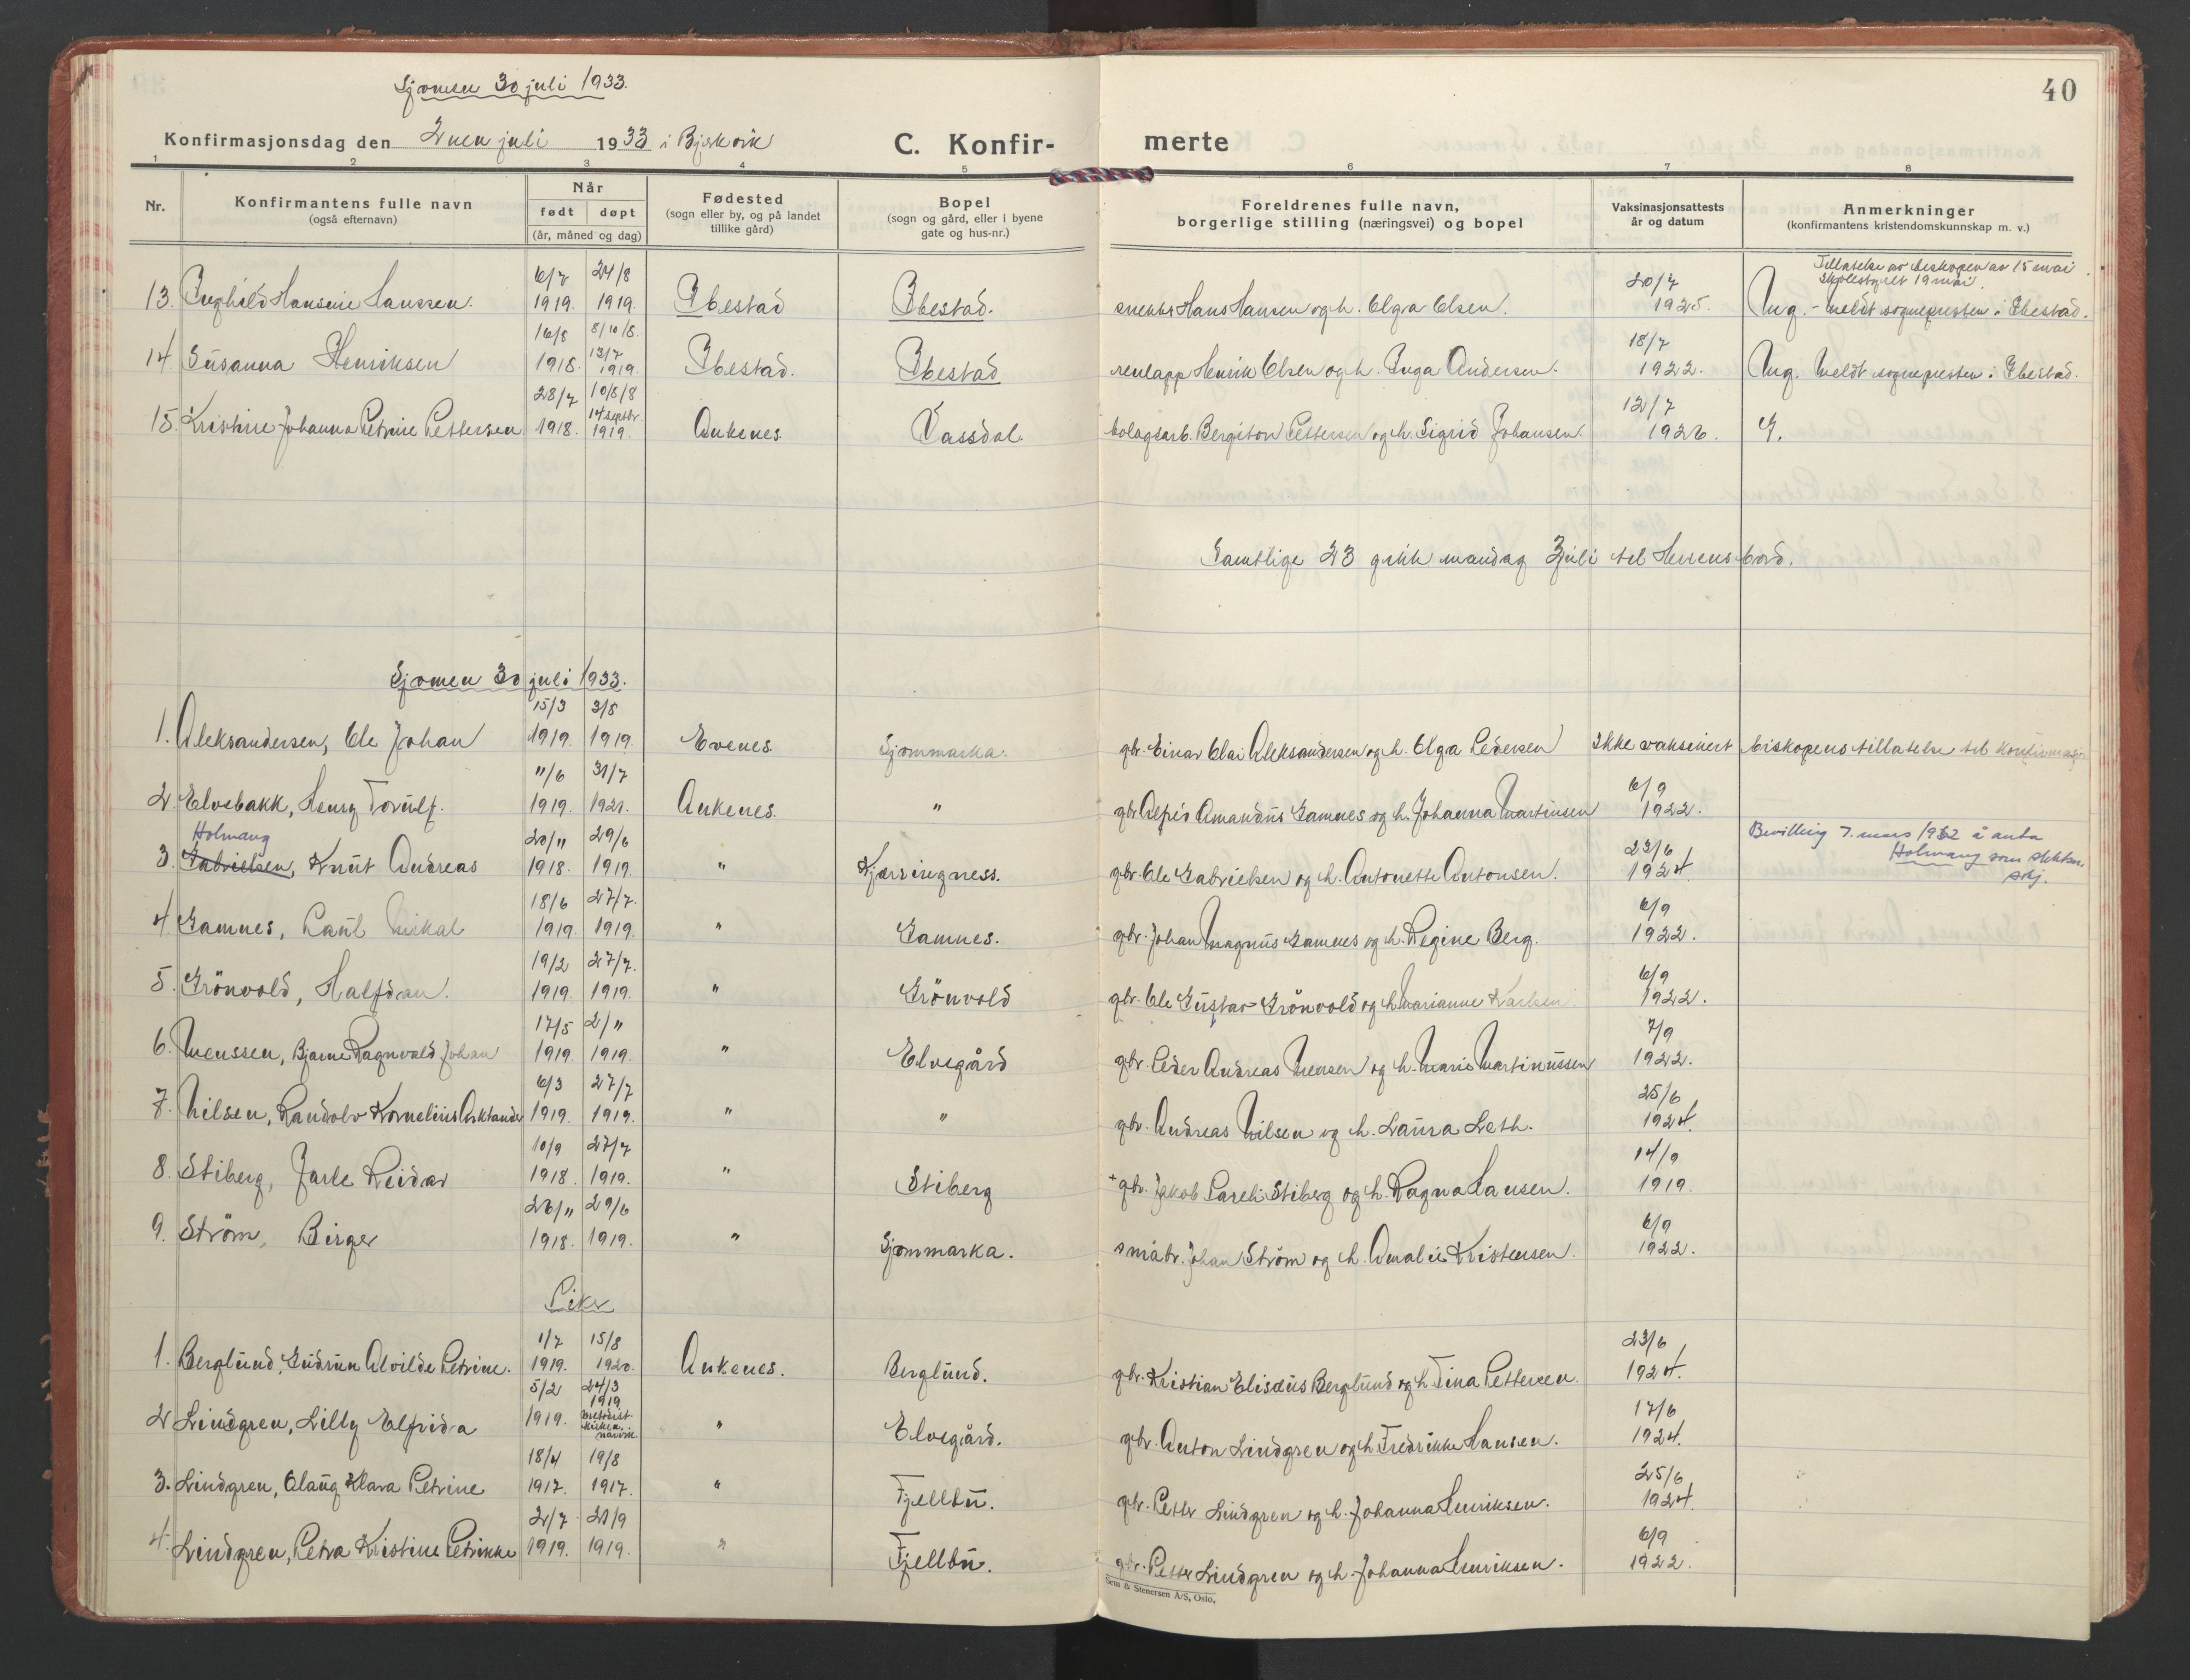 40
Sjomen 30 juli 1933.
Konfirmasjonsdag den 2nen juli 1933 i Bjerkvik
C. Konfir- merte
1 2 3 4 5 6 7 8
Nr.
Konfirmantens fulle navn
(også efternavn)
Når
født døpt
(år, måned og dag)
Fødested
(sogn eller by, og på landet
tillike gård)
Bopel
(sogn og gård, eller i byene
gate og hus-nr.)
Foreldrenes fulle navn,
borgerlige stilling (næringsvei) og bopel
Vaksinasjonsattests
år og datum
Anmerkninger
(konfirmantens kristendomskunnskap m. v.)
6/7 24/8 20/7 Tillatelse av biskopen av 15 mai
skolestyret 19 mai.
13. Inghild Hansine Hanssen. 1919. 1919. Ibestad Ibestad. Hans Hansen og h. Olga Olsen. 1925. Ung. - meldt sognepresten i Ibestad.
16/8 8/10/8. 18/7
13/7
14 Susanna Henriksen 1918. 1919. Ibestad. Ibestad renlapp Henrik Olsen og h. Inga Andersen. 1922. Ung. meldt sognepresten i Ibestad.
28/7 10/8/8 12/7
14 septbr.
15. Kristine Johanna Petrine Pettersen 1918. 1919. Ankenes Vassdal. bolagsarb. Bergiton Pettersen og h. Sigrid Johansen. 1926. G.
Samtlige 23 gikk mandag 3 juli til Herrens bord.
Sjomen 30 juli 1933.
15/3 3/8
1. Aleksandersen, Ole Johan 1919. 1919. Evenes Sjommarka. gbr. Einar Olai Aleksandersen og h. Olga Pedersen Ikke vaksinert biskopens tillatelse til konfirmasj.
11/6 31/7 6/9
2. Elvebakk, Henry Torulf. 1919. 1921. Ankenes. " gbr Alfred Amandus Gamnes og h. Johanna Martinsen 1922.
Holmang 20/11 29/6 23/6 Bevilling 7. mars 1962 å anta
3. Gabrielsen, Knut Andreas 1918. 1919. " Kjærringness. gbr. Ole Gabrielsen og h. Antonette Antonsen. 1924. Holmang som slektsn.
18/6 27/7. 6/9
4 Gamnes, Paul Mikal 1919. 1919. " Gamnes. gbr. Johan Magnus Gamnes og h. Regine Berg. 1922.
19/2 27/7. 6/9
5. Grönvold, Halfdan. 1919. 1919. " Grönvold gbr. Ole Gustav Grönvold og h. Marianne Karlsen. 1922.
17/5 2/11 7/9
6. Menssen, Bjarne Ragnvald Johan 1919. 1919. " Elvegård gbr. Peder Andreas Mensen og h. Marie Martinussen 1922.
6/3 27/7 25/6
7. Nilsen, Randolv Kornelius Arktander 1919. 1919. " " gbr. Andreas Nilsen og h. Laura Leth. 1924.
10/9 27/7 14/9
8. Stiberg, Jarle Reidar 1918. 1919. " Stiberg + gbr. Jakob Pareli Stiberg og h. Ragna Hansen. 1919.
26/11 29/6 6/9
9. Ström, Birger 1918. 1919. " Sjommarka. småbr. Johan Ström og h. Amalie Kristensen. 1922.
Piker
1/7 15/8 23/6
1. Berglund, Gudrun Alvilde Petrine. 1919. 1920. Ankenes. Berglund. gbr. Kristian Elisæus Berglund og h. Tina Pettersen. 1924.
5/2 24/3 17/6
1919
2 Lindgren, Lilly Elfrida 1919. metodist kirken, narvik " Elvegård. gbr. Anton Lindgren og h. Fredrikke Hansen. 1924.
18/4 19/8 25/6
3. Lindgren, Olaug Klara Petrine 1917. 1917. " Fjellbu. gbr. Petter Lindgren og h. Johanna Henriksen. 1924.
2/7 21/9 6/9
4. Lindgren, Petra Kristine Petrikke 1919. 1919. " Fjellbu. gbr. Petter Lindgren og h. Johanna Henriksen. 1922.
Sem & Stenersen A/S, Oslo.